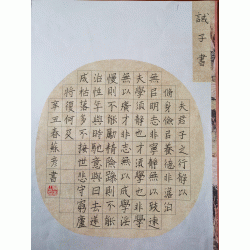 誡子書
夫君子之行靜以
脩身儉以養德非澹泊
無以明志非寧靜無以致遠
夫學須靜也才須學也非學
無以廣才非志無以成學淫
慢則不能勵精險躁則不能
治性年與時馳意與日去遂
成枯落多不接世悲守窮廬
將復何及
辛丑春蘇書